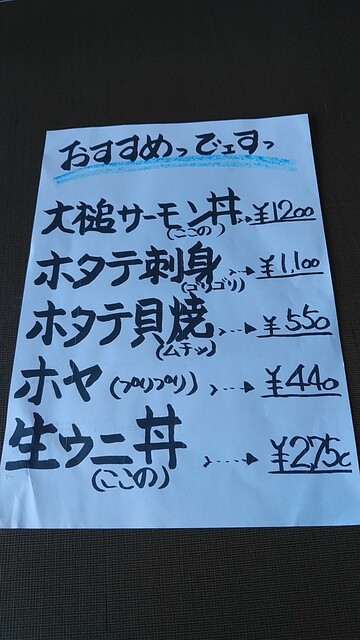 おすすめっでェすっ
大槌サーモン丼 ¥1200
(ここの)
ホタテ刺身 ¥1,100
(コリゴリ)
ホタテ貝焼 ¥550
(ムチッ)
ホヤ(プリプリ) ¥440
生ウニ丼 ¥2750
(ここの)